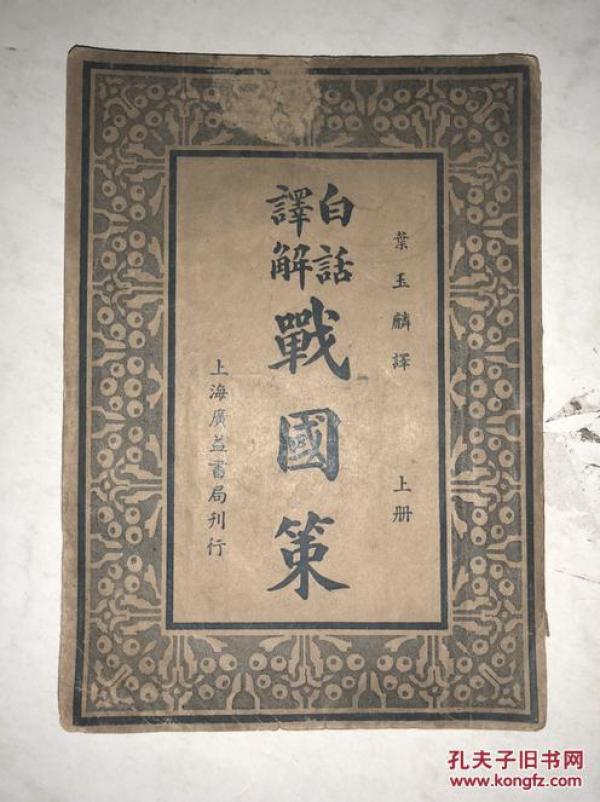 葉玉麟譯 上册
白話
譯解
戰國策
上海廣益書局刊行
孔夫子旧书网
www.kongfz.com